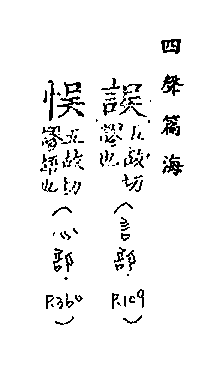 四聲篇海
誤五故切謬也（言部．P.109）
悞五故切謬悞也（心部．P.360）